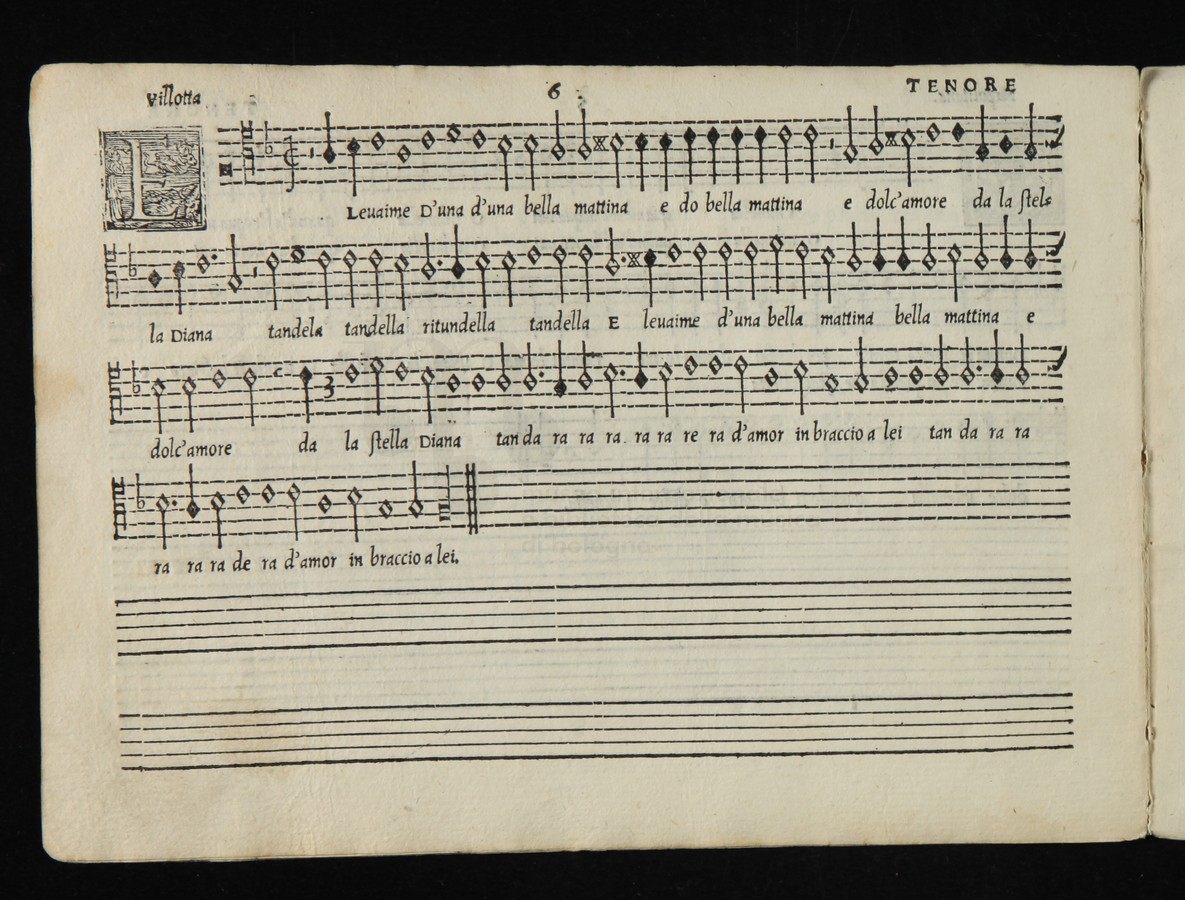 Villotta 6 TENORE
L Leuaime D'una d'una bella mattina e do bella mattina e dolc'amore da la stel=
la Diana tandela tandella ritundella tandella E leuaime d'una bella mattina bella mattina e
3
dolc'amore da la stella Diana tan da ra ra ra. ra ra re ra d'amor in braccio a lei tan da ra ra
ra ra ra de ra d'amor in braccio a lei.